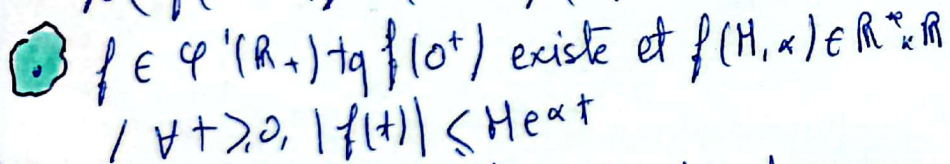 f ∈ φ'(R₊) tq f(0⁺) existe et f(M,α) ∈ R*₊ₓR
/ ∀t⩾0, |f(t)| ≤ Me^αt